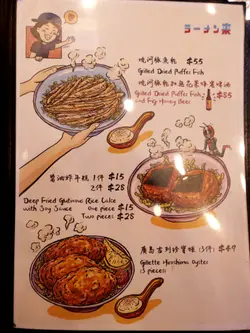 ラーメン来
燒河豚魚乾 $55
Grilled Dried Puffer Fish
Grilled Dried Puffer Fish
and Fig Honey Beer
$85
醬油炸年糕 1件 $15
2件 $28
Deep Fried Glutinous Rice Cake
with Soy Sauce One piece $15
Two pieces $28
廣島吉列珍寶蠔 (3件) $49
Hiroshima Oyster
3 pieces